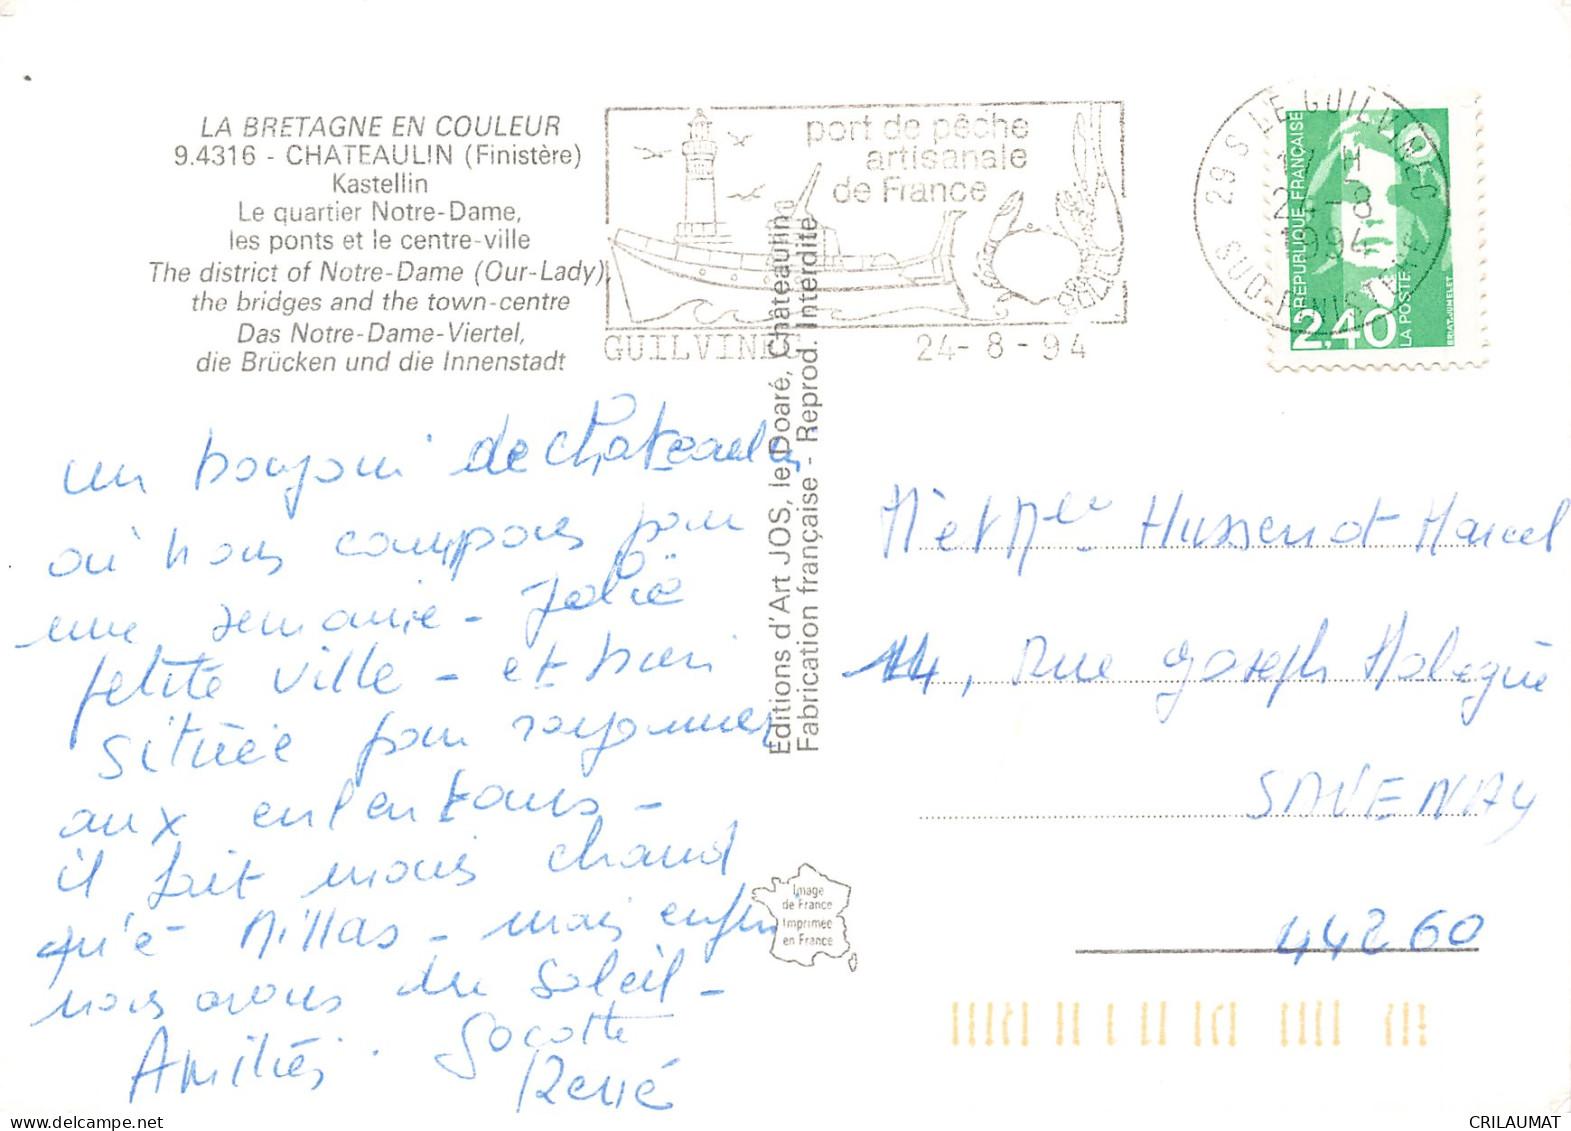 LA BRETAGNE EN COULEUR
9.4316 - CHATEAULIN (Finistère)
Kastellin
Le quartier Notre-Dame,
les ponts et le centre-ville
The district of Notre-Dame (Our-Lady),
the bridges and the town-centre
Das Notre-Dame-Viertel,
die Brücken und die Innenstadt
port de pêche
artisanale
de France
GUILVINEC 24-8-94
29 S LE GUILVINEC
SUD FINISTERE
1994
REPUBLIQUE FRANÇAISE
2,40
LA POSTE
BRIAT-JUMELET
un bonjour de Chateaulin
où nous campons pour
une semaine - Jolie
petite ville - et bien
située pour rayonner
aux alentours -
il fait moins chaud
qu'à Millas - mais enfin
nous avons du soleil -
Amitiés. Cocotte
René
Editions d'Art JOS, le Doaré, Châteaulin
Fabrication française - Reprod. Interdite
Mr et Mme Hussenot Marcel
14, Rue Joseph Malègue
SAVENAY
44260
Image
de France
Imprimée
en France
CRILAUMAT